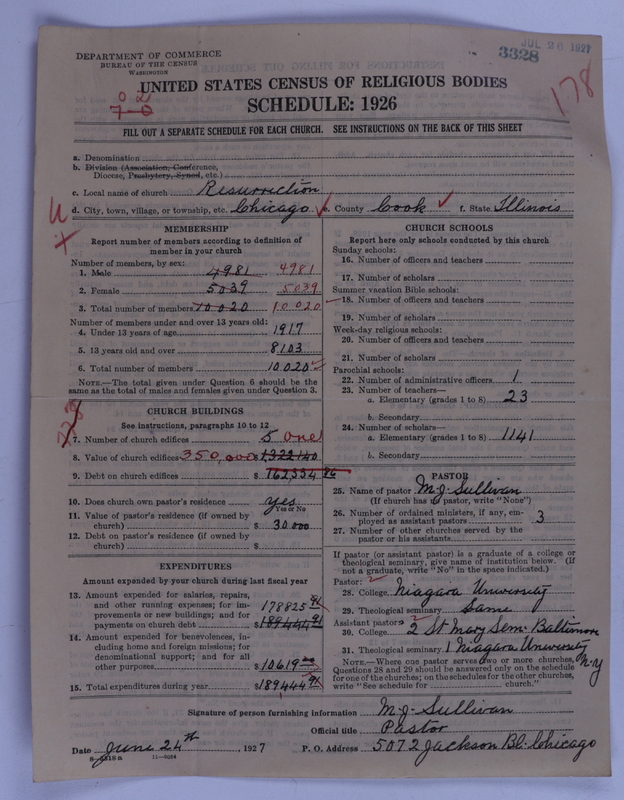 JUL 26 1927
3328
178
DEPARTMENT OF COMMERCE
BUREAU OF THE CENSUS
WASHINGTON
UNITED STATES CENSUS OF RELIGIOUS BODIES
SCHEDULE: 1926
0 2
7-0
FILL OUT A SEPARATE SCHEDULE FOR EACH CHURCH. SEE INSTRUCTIONS ON THE BACK OF THIS SHEET
a. Denomination
b. Division (Association, Conference,
Diocese, Presbytery, Synod, etc.)
c. Local name of church Resurrection
d. City, town, village, or township, etc. Chicago e. County Cook f. State Illinois
MEMBERSHIP
Report number of members according to definition of
member in your church
Number of members, by sex:
1. Male 4981 4981
2. Female 5039 5039
3. Total number of members 10020 10020
Number of members under and over 13 years old:
4. Under 13 years of age 1917
5. 13 years old and over 8103
6. Total number of members 10020
NOTE.—The total given under Question 6 should be the
same as the total of males and females given under Question 3.
CHURCH BUILDINGS
See instructions, paragraphs 10 to 12
7. Number of church edifices 5 one
8. Value of church edifices 350,000
9. Debt on church edifices $ 162,554 86
10. Does church own pastor's residence yes
Yes or No
11. Value of pastor's residence (if owned by
church) $ 30000
12. Debt on pastor's residence (if owned by
church) $
EXPENDITURES
Amount expended by your church during last fiscal year
13. Amount expended for salaries, repairs,
and other running expenses; for im-
provements or new buildings; and for
payments on church debt 178825 91
$ 189444 91
14. Amount expended for benevolences, in-
cluding home and foreign missions; for
denominational support; and for all
other purposes $ 10619
15. Total expenditures during year $ 189444 91
CHURCH SCHOOLS
Report here only schools conducted by this church
Sunday schools:
16. Number of officers and teachers
17. Number of scholars
Summer vacation Bible schools:
18. Number of officers and teachers
19. Number of scholars
Week-day religious schools:
20. Number of officers and teachers
21. Number of scholars
Parochial schools:
22. Number of administrative officers 1
23. Number of teachers—
a. Elementary (grades 1 to 8) 23
b. Secondary
24. Number of scholars—
a. Elementary (grades 1 to 8) 1141
b. Secondary
PASTOR
25. Name of pastor M. J. Sullivan
(If church has no pastor, write "None")
26. Number of ordained ministers, if any, em-
ployed as assistant pastors 3
27. Number of other churches served by the
pastor or his assistants
If pastor (or assistant pastor) is a graduate of a college or
theological seminary, give name of institution below. (If
not a graduate, write "No" in the space indicated.)
Pastor:
28. College Niagara University
29. Theological seminary Same
Assistant pastor:
30. College 2 St Mary Sem. Baltimore
31. Theological seminary 1 Niagara University
N-Y
NOTE.—Where one pastor serves two or more churches,
Questions 28 and 29 should be answered only on the schedule
for one of the churches; on the schedules for the other churches,
write "See schedule for church."
Signature of person furnishing information M. J. Sullivan
Official title Pastor
Date June 24th 1927 P. O. Address 5072 Jackson Bl. Chicago
11—9034